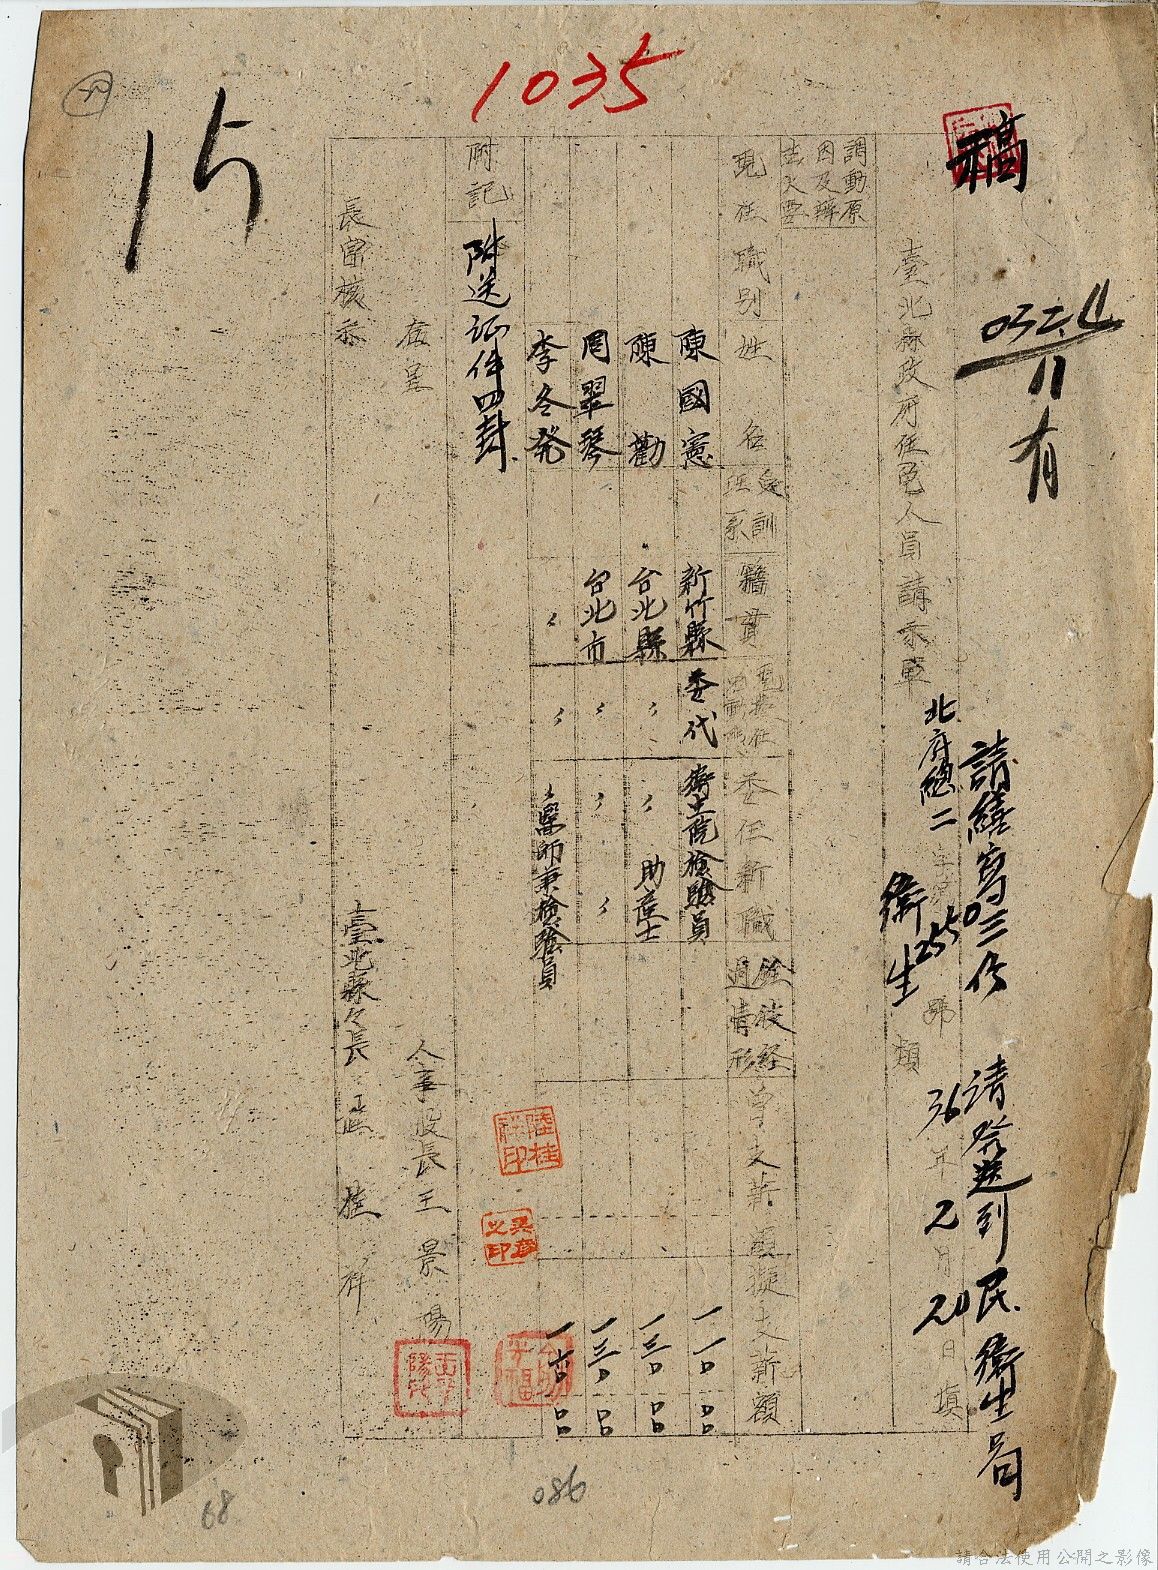 1035
15
稿
有
請繕寫三份 請發送到民衛生局
臺北縣政府任免人員請示單
北府總二字第255號 36年2月20日填
衛生類
調動原因及辦法大要
現任職別
姓名
受訓
籍貫
委任新職
銓敘經過情形
曾支薪額
擬支薪額
陳國憲 新竹縣 委代 衛生院檢驗員 一一〇
陳勸 台北縣 〃 〃 助產士 一三〇
周翠琴 台北市 〃 〃 〃 一三〇
李冬発 〃 〃 〃 醫師兼檢驗員 一六〇
附記
附送証件四封
右呈
人事股長王景陽
長官核示
臺北縣々長陸桂祥
陸桂祥印
086
68
請合法使用公開之影像